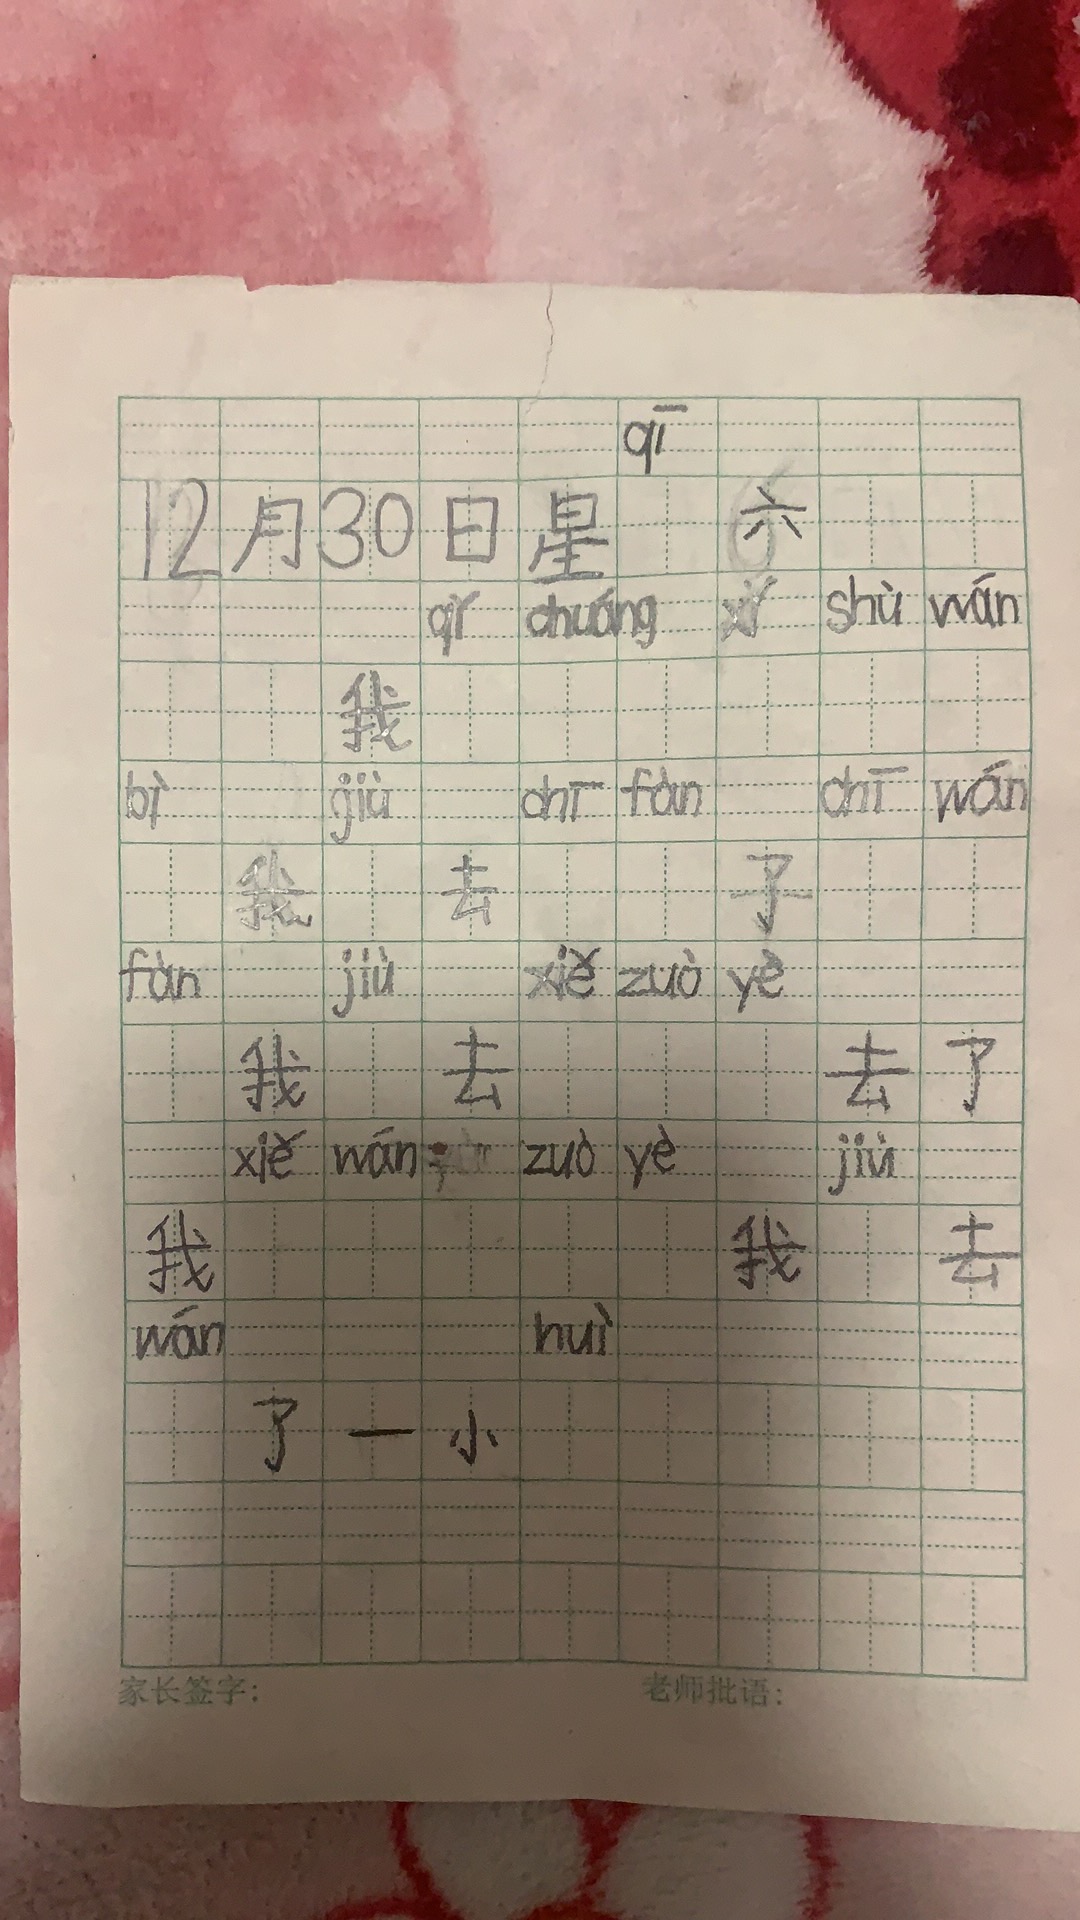 qī
12月30日星 六
qǐ chuáng xǐ shù wán
我
bì jiù chī fàn chī wán
我 去 了
fàn jiù xiě zuò yè
我 去 去了
xiě wán zuò yè jiù
我 我 去
wán huì
了一小
家长签字: 老师批语: